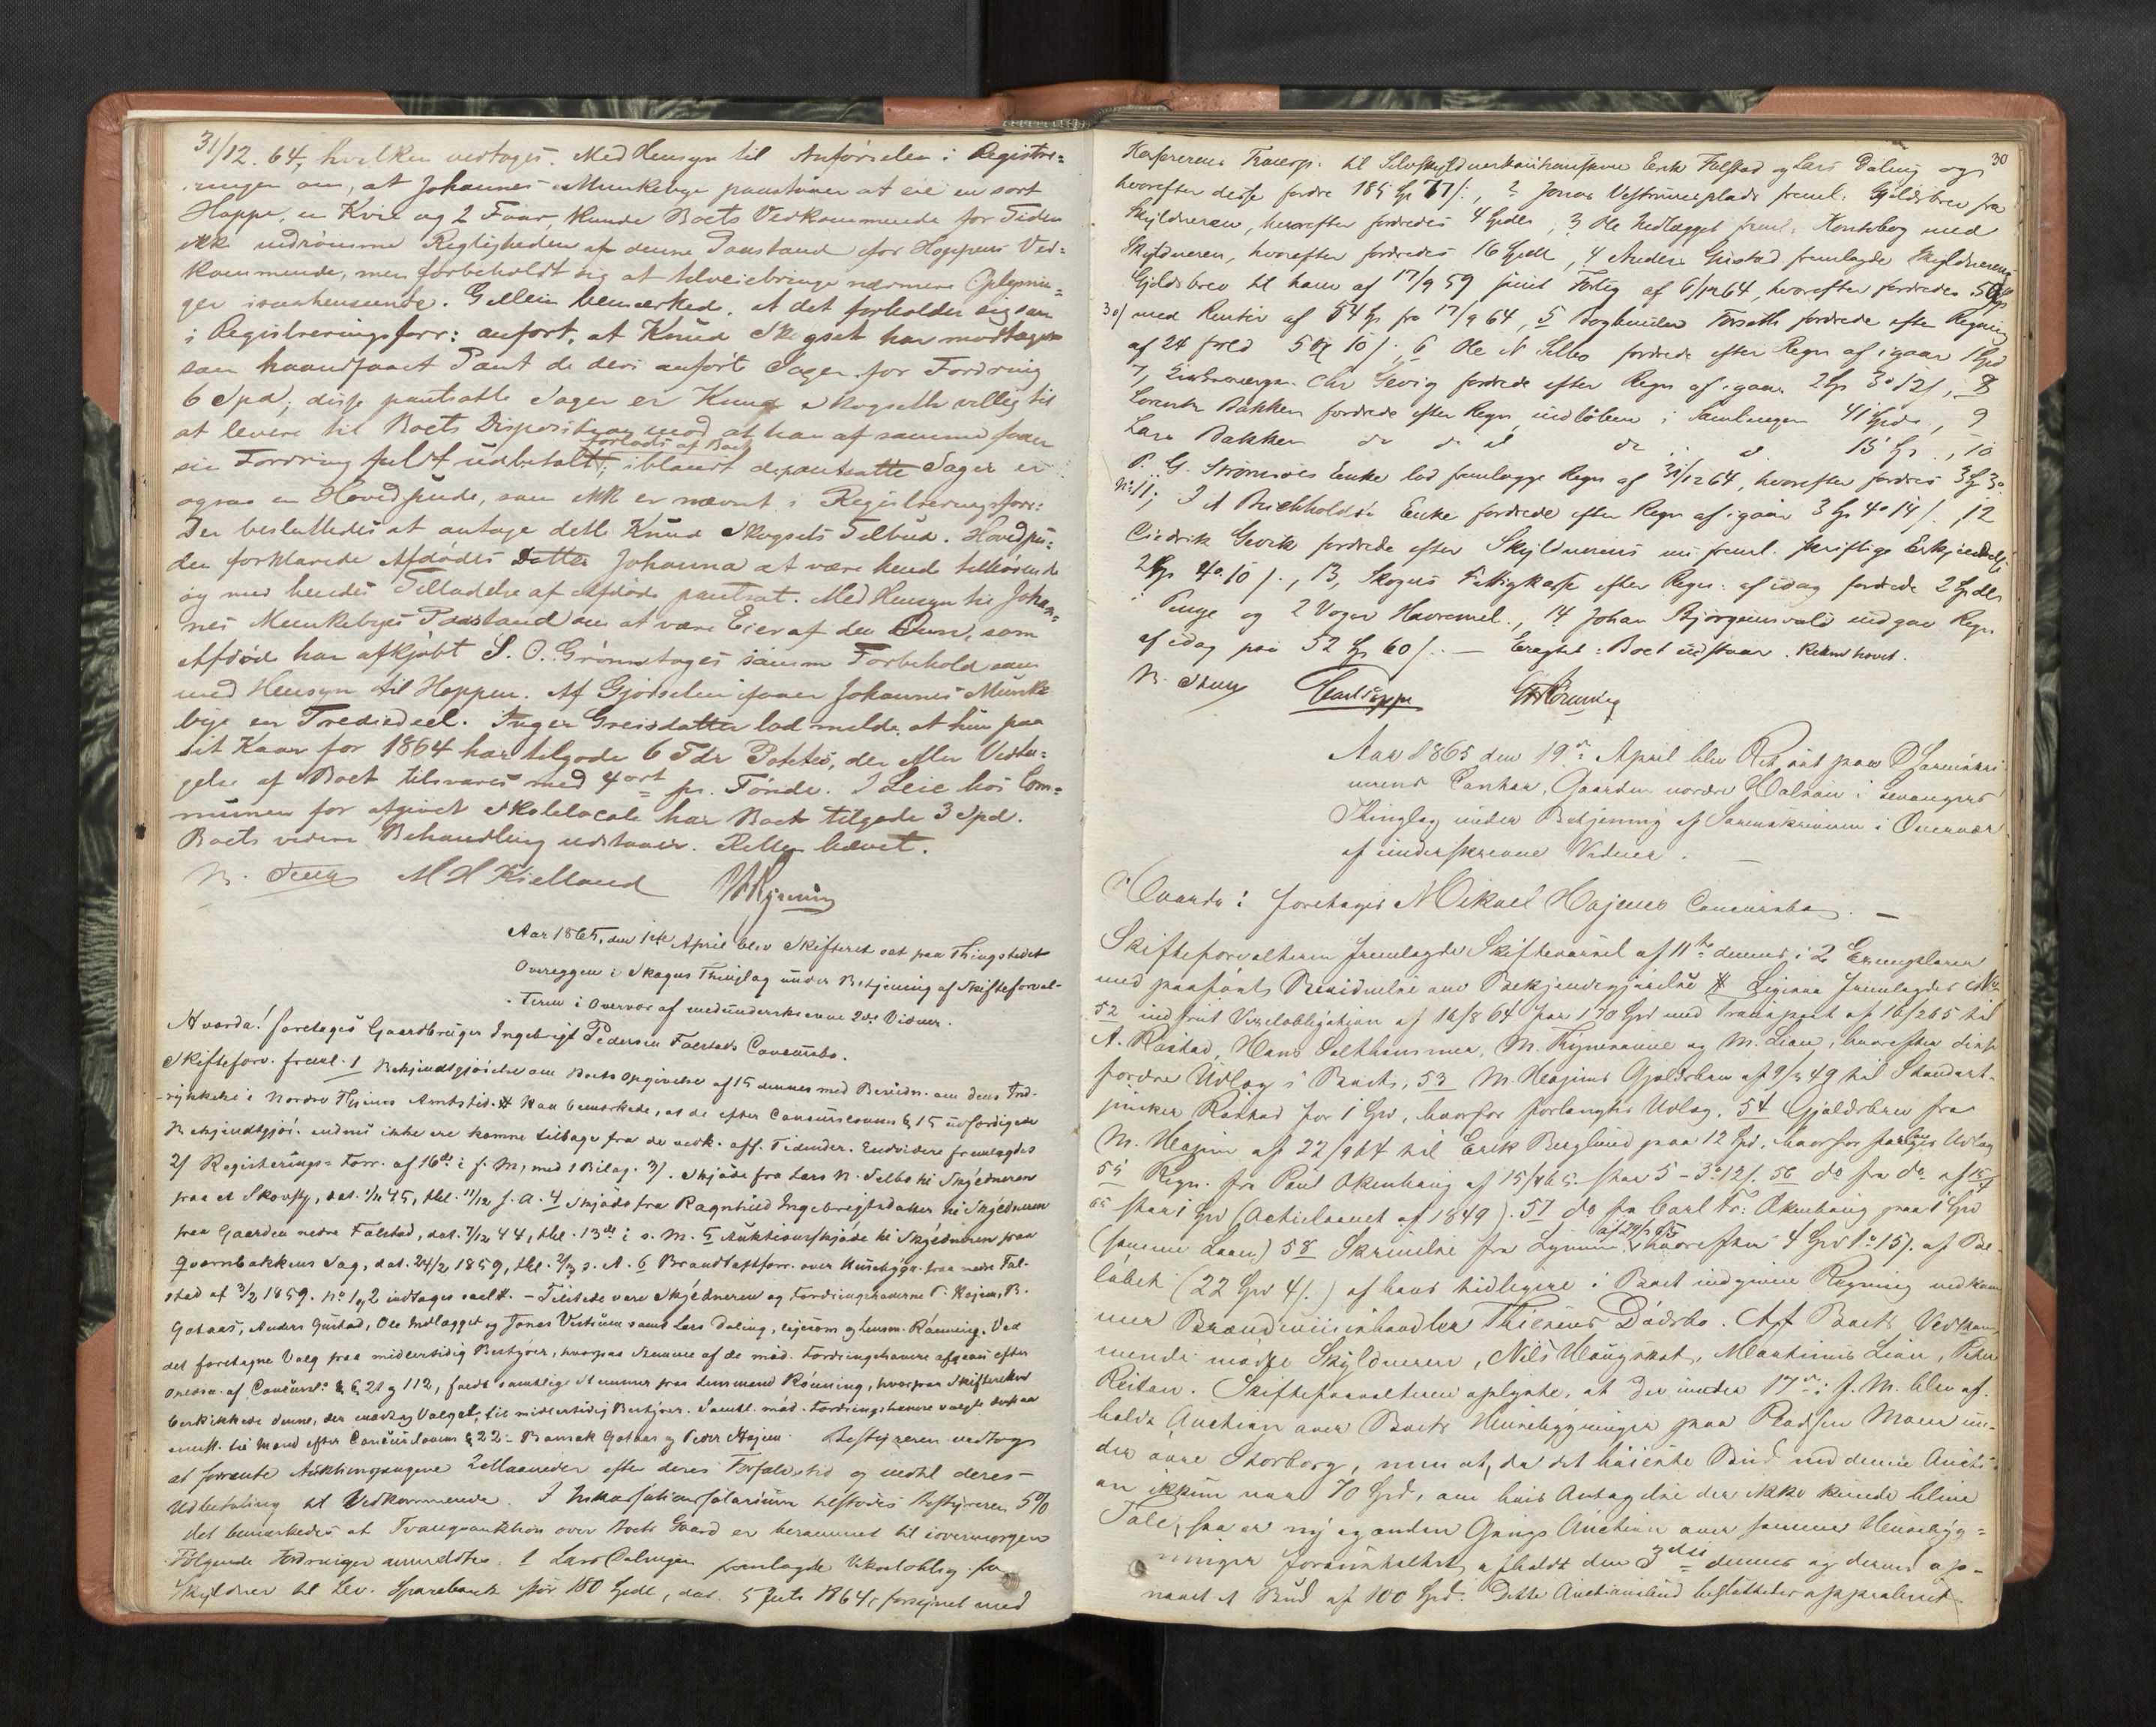 31/12. 64, hvilken vedtoges. Med Hensyn til Anførselen i Registre=
ringen om, at Johannes Munkebye paastaaer at eie en sort
Hoppe, en Kvie og 2 Faar, kunde Boets Vedkommende for Tiden
ikke indrømme Rigtigheden af denne Paastand for Hoppens Ved=
kommende, men forbeholdt sig at tilveiebringe nærmere Oplysnin=
ger isaahenseende. Gellein bemærkede, at det forholder sig som
i Registreringsforr: anført, at Knud Skogset har modtaget
som haandfaaet Pant de deri anførte Sager for Fordring
6 Spd; disse pantsatte Sager er Knud Skogseth villig til
at levere til Boets Disposition mod at han af samme faaer
sin Fordring fuldt udbetalt, iblandt de pantsatte Sager er
forlods af Boet
ogsaa en Hovedpude, som ikke er nævnt i Registreringsforr:
Der besluttedes at antage dette Knud Skogsets Tilbud. Hovedpu=
den forklarede Afdødes Datter Johanna at være hende tilhørende
og med hendes Tilladelse af Afdøde pantsat. Med Hensyn til Johan=
nes Munkebyes Paastand om at være Eier af den Ovn, som
Afdøde har afkjøbt S. O. Grønn toges samme Forbehold som
med Hensyn til Hoppen. Af Gjødselen faaer Johannes Munke
bye en Trediedeel. Inger Greisdatter lod melde, at hun paa
sit Kaar for 1864 har tilgode 6 Tdr Poteter, der efter Vedta=
gelse af Boet tilsvares med 4 ort pr. Tønde. I Leie hos Com=
munen for afgivet Skolelocale har Boet tilgode 3 Spd.
Boets videre Behandling udstaaer. Retten hævet.
M H Kielland
Aar 1865, den 1ste April blev Skifteret sat paa Thingstedet
Overeggen i Skogns Thinglag under Betjening af Skifteforval-
teren i Overvær af medunderskrevne 2de Vidner.
Hvorda! foretoges Gaardbruger Ingebrigt Pedersen Falstads Concursbo.
Skifteforv. freml. 1 Bekjendtgjørelse om Boets Opgivelse af 15 dennes med Beviidn. om dens Ind-
rykkelse i Nordre Thjems Amtstid. Han bemærkede, at de efter Concurslovens § 15 udfærdigede
Bekjendtgjør. endnu ikke ere komne tilbage fra de vedk. off. Tidender. Endvidere fremlagdes
2) Registrerings-Forr. af 16de i f. M, med 1 Bilag. 3). Skjøde fra Lars N. Selbo til Skyldneren
paa et Skovsty, dat. 1/11 45, thl. 11/12 f. A. 4 Skjøde fra Ragnhild Ingebrigtsdatter til Skyldneren
paa Gaarden nedre Falstad, dat. 7/12 44, thl. 13de i s. M. 5 Auktionsskjøde til Skyldneren paa
Qvernbakkens Sag, dat. 24/2 1859, thl. 2/3 s. A. 6 Brandtaxtforr. over Husebygn. paa nedre Fal-
stad af 3/2 1859. No 1 og 2 indtages saal. — Tilstede vare Skyldneren og Fordringshaverne P. Hojem, B.
Gotaas, Anders Gustad, Ole Indlægget og Jonas Vestrum samt Lars Daling, ligesom og Lensm. Rønning. Ved
det foretagne Valg paa midlertidig Bestyrer, hvorpaa Stemme af de mød. Fordringshavere afgaves efter
Oplæsn. af Concursl: § § 21 og 112, faldt samtlige Stemmer paa Lensmand Rønning, hvorpaa Skifteretten
beskikkede denne, der modtog Valget, til midlertidig Bestyrer. Samtl. mød. Fordringshavere valgte derpaa
til Mænd efter Concurslovens § 22: Bansak Gotaas og Peder Hojem. Bestyreren vedtog
at forrente Auktionspengene 2 Maaneder efter deres Forfaldstid og indtil deres
Udbetaling til Vedkommende. I Inkassationssalarium tilstodes Bestyreren 5%
det bemærkedes at Tvangsauktion over Boets Gaard er berammet til iovermorgen
Følgende Fordringer anmeldtes. 1 Lars Dalingen fremlagde Vexeloblig. fra
Skyldner til Lev. Sparebank stor 180 Spdl, dat. 5 Juli 1864, forsynet med
30
Transp. til Selvskyldnerkautionisterne Erik Falstad og Lars Daling og
hvorefter disse fordre 185 Sp 77/:, 2 Jonas Vestrumsplads freml. Gjeldsbrev fra
Skyldneren, hvorefter fordredes 4 Spdl, 3 Ole Indlægget freml. Kontrabog med
Skyldneren, hvorefter fordredes 16 Spdl, 4 Anders Gustad fremlagde Skyldnerens
Gjeldsbrev til ham af 17/9 59 samt Forlig af 6/12 64, hvorefter fordredes 50 Sp
med Renter af 54 Sp fra 17/9 64, 5 Dagbuiler Forseth fordrede efter Regning
af 24 5 10/. 6 Ole N Selbo fordrede efter Regn af igaar 1 Spd
7, Chr Gevig fordrede efter Regn af igaar 2 Sp 3o 12/, 8
Lorents Bakken fordrede efter Regn indløben i Samlingen 41 Spd, 9
Lars Bakken do do do 15 Sp, 10
P. G. Strømsøes Enke lod fremlægge Regn af 31/12 64, hvorefter fordres 3 Sp 3o
No 11, J A Buchholdts Enke fordrede efter Regn af igaar 3 Sp 4o 14/. 12
Ciedrik Gevik fordrede efter Skyldnerens nu freml. skriftlige Erkjendelse
2 Sp 4o 10/., 13, Skogns Fattigkasse efter Regn. af idag fordrede 2 Spdl
i Penge og 2 Voger Havremel., 14 Johan Bjørgumsvald indgav Regn
af idag paa 52 Sp 60/. — Eragtet: Boet udstaar. Retten hævet.
Aar 1865 den 19de April blev Ret sat paa Sorenskri
verens Contor, Gaarden nordre Halsan i Levangers
Thinglag under Betjening af Sorenskriveren i Overvær
af underskrevne Vidner. —
Hvorda: foretoges Mikael Hojems Concursbo. —
Skifteforvalteren fremlagde Skiftevarsel af 11te dennes i 2 Exemplarer
med paaførte Beviidnelse om Bekjendtgjørelse. Ligesaa fremlagdes
52 indfriet Vexelobligation af 16/8 64 paa 170 Spd med Transport af 16/2 65 til
A. Røstad, Hans Salthammer, M. Thynesaune og M. Lian, hvorefter disse
fordre Udlæg i Boet, 53 M. Hojems Gjeldsbrev af 9/3 49 til Standart-
junker Røstad for 1 Spd, hvorfor forlangtes Udlæg. 54 Gjældsbrev fra
M. Hojem af 22/9 64 til Erik Berglund paa 12 Spd, hvorfor forlanges Udlæg
55 Regn. fra Paul Okenhaug af 15/4 65 stor 5 - 3o 12/. 56 do fra do af 15/4
65 stor 1 Spd (Actielaanet af 1849). 57 do fra Carl Fr: Okenhaug paa 1 Spd
(samme Laan) 58 Skrivelse fra Lynum af 29/3 65, hvorefter 4 Spd 1o 15/. af Be-
løbet (22 Spd 4/.) af hans tidligere i Boet indgivne Regning vedkom
mer Brændeviinshandler Thiesens Dødsbo. Af Boets Vedkom
mende mødte Skyldneren, Nils Haugskot, Martinus Lian, Peter
Reitan. Skifteforvalteren oplyste, at der under 17de i f. M. blev af-
holdt Auction over Boets Huusebygninger paa Pladsen Moen un-
der øvre Skorborg, men at, da det høieste Bud ved denne Aucti-
on ikkun var 70 Spd, om hvis Antagelse der ikke kunde blive
Tale, saa er ny og anden Gangs Auction over samme Huusebyg=
ninger foranstaltet afholdt den 3die dennes og derved op-
naaet et Bud af 100 Spd. Dette Auctionsbud besluttedes approberet